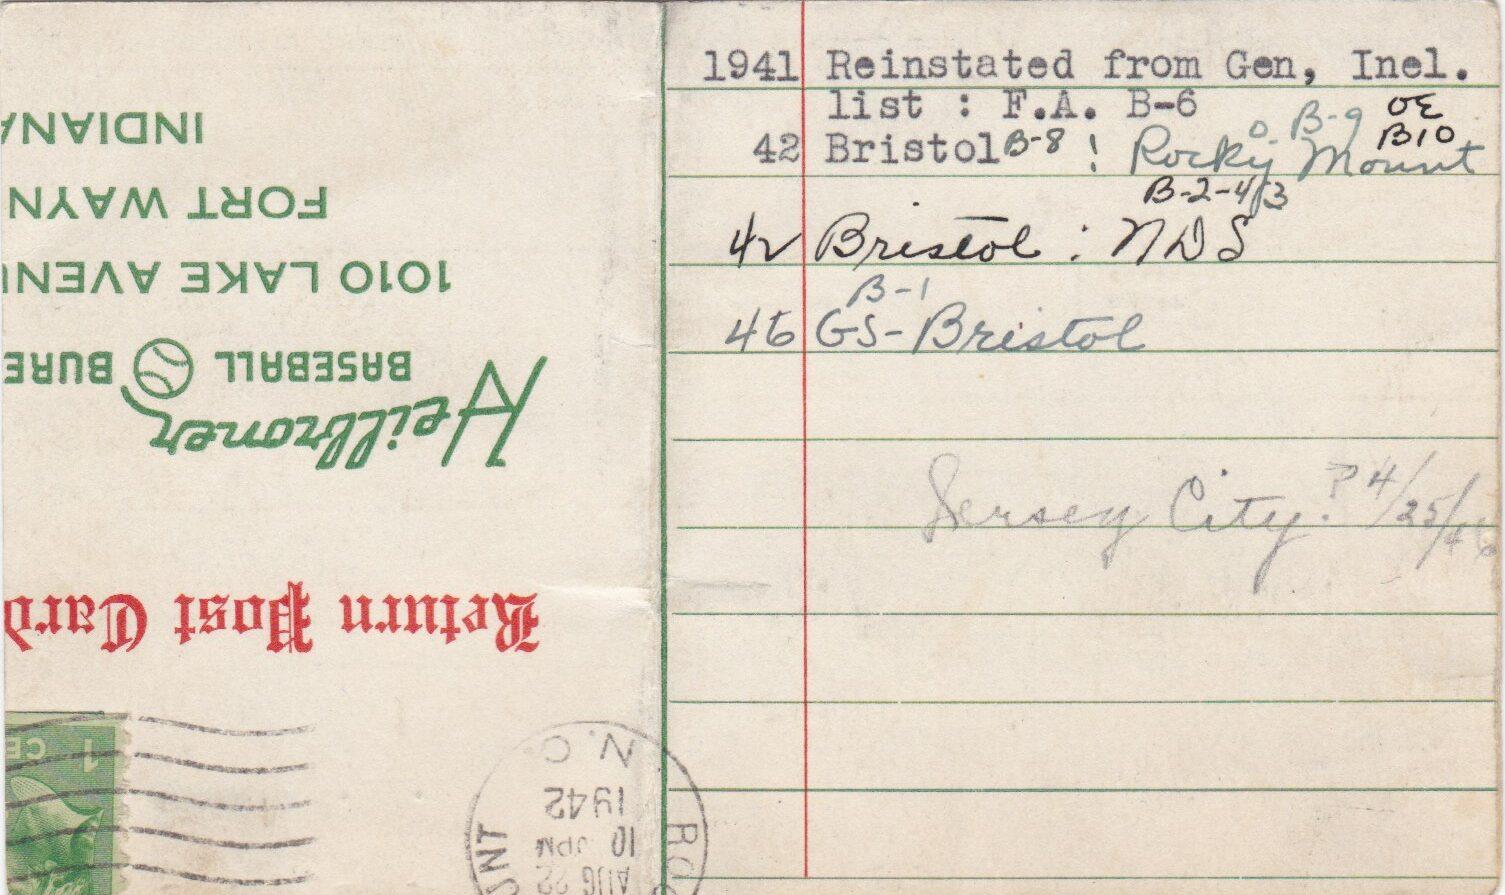 1941 Reinstated from Gen, Inel.
list : F.A. B-6
OE
B-9
B10
42 Bristol B-8 ; Rocky Mount
B-2-43
42 Bristol : NDS
B-1
46 GS-Bristol
Jersey City. ? 4/25/46
Return Post Card
Heilbroner
BASEBALL BURE
1010 LAKE AVENU
FORT WAYN
INDIANA
1 CE
N. C.
1942
10 PM
AUG 22
RO
UNT